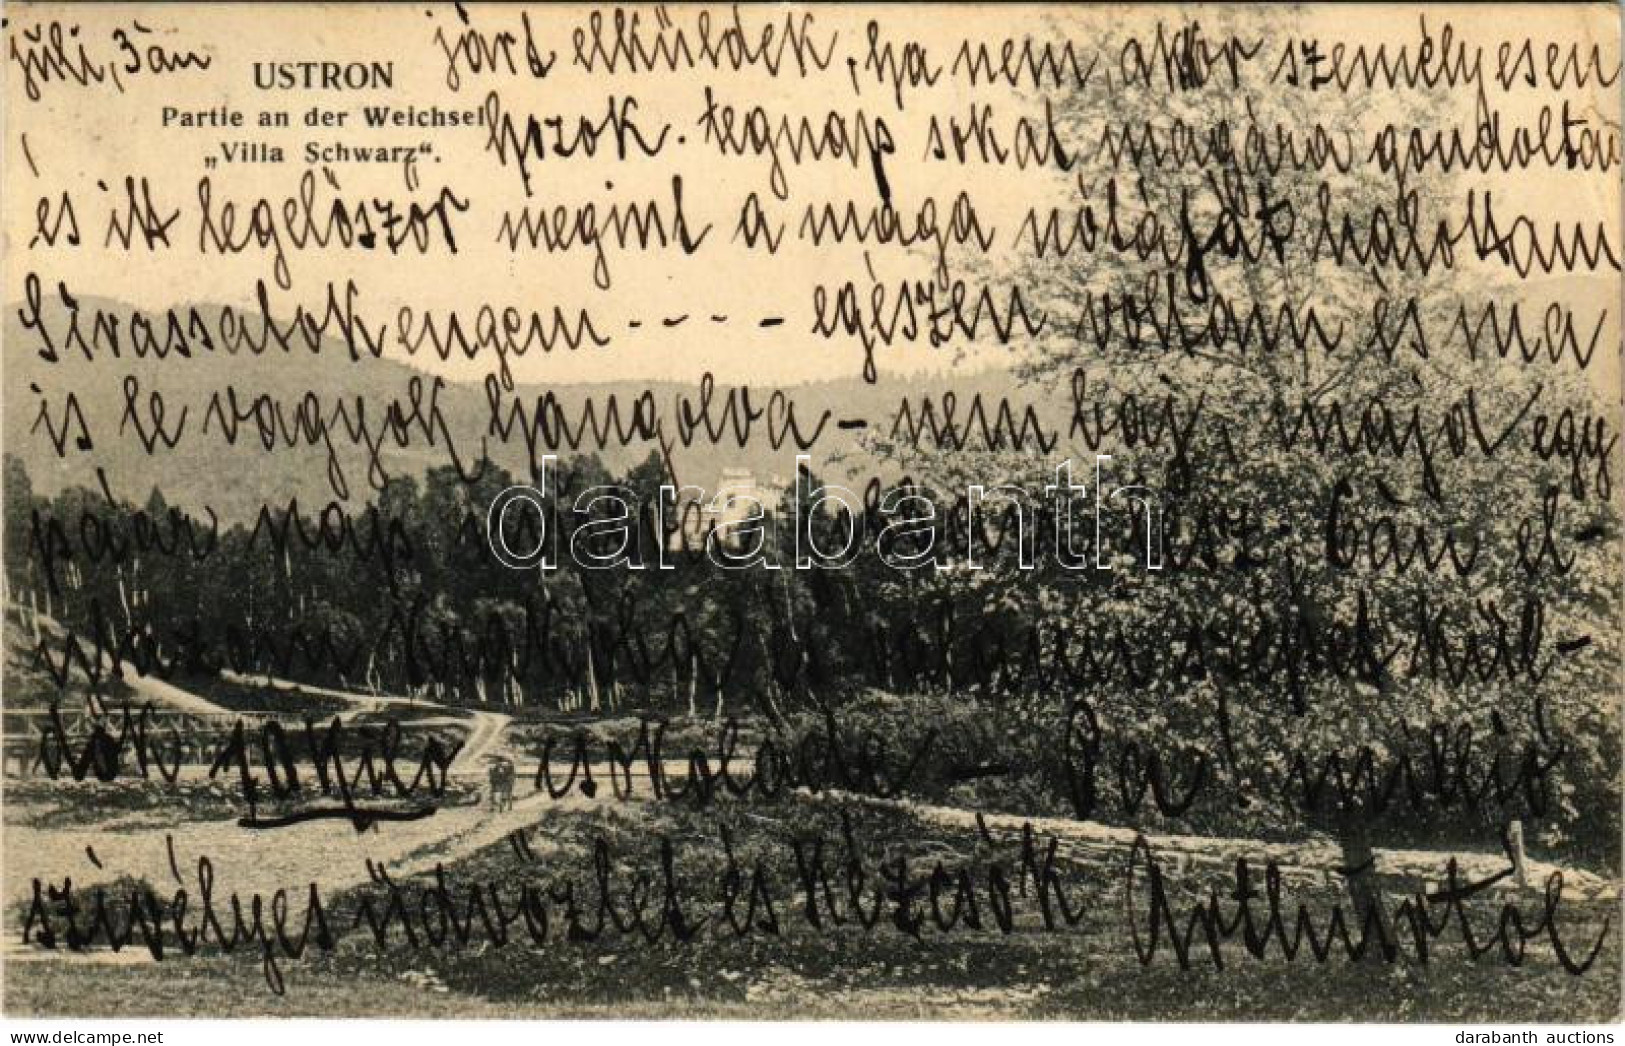 juli, 3 án
USTRON
Partie an der Weichsel
„Villa Schwarz“.
járt elküldek, ha nem, akkor személyesen
hozok. tegnap sokat magára gondoltam
és itt legelöször megint a maga nótáját halottam
Sirassatok engem - - - - egészen voltam és ma
is le vagyok hangolva - nem baj, majd egy
páar nap lesz. 6 án el-
utazom Krakkóba, valami szépet kül-
dök csokoládé - Pa! millió
szivélyes üdvözlet és kézcsók Arthúrtol
darabanth
darabanth auctions